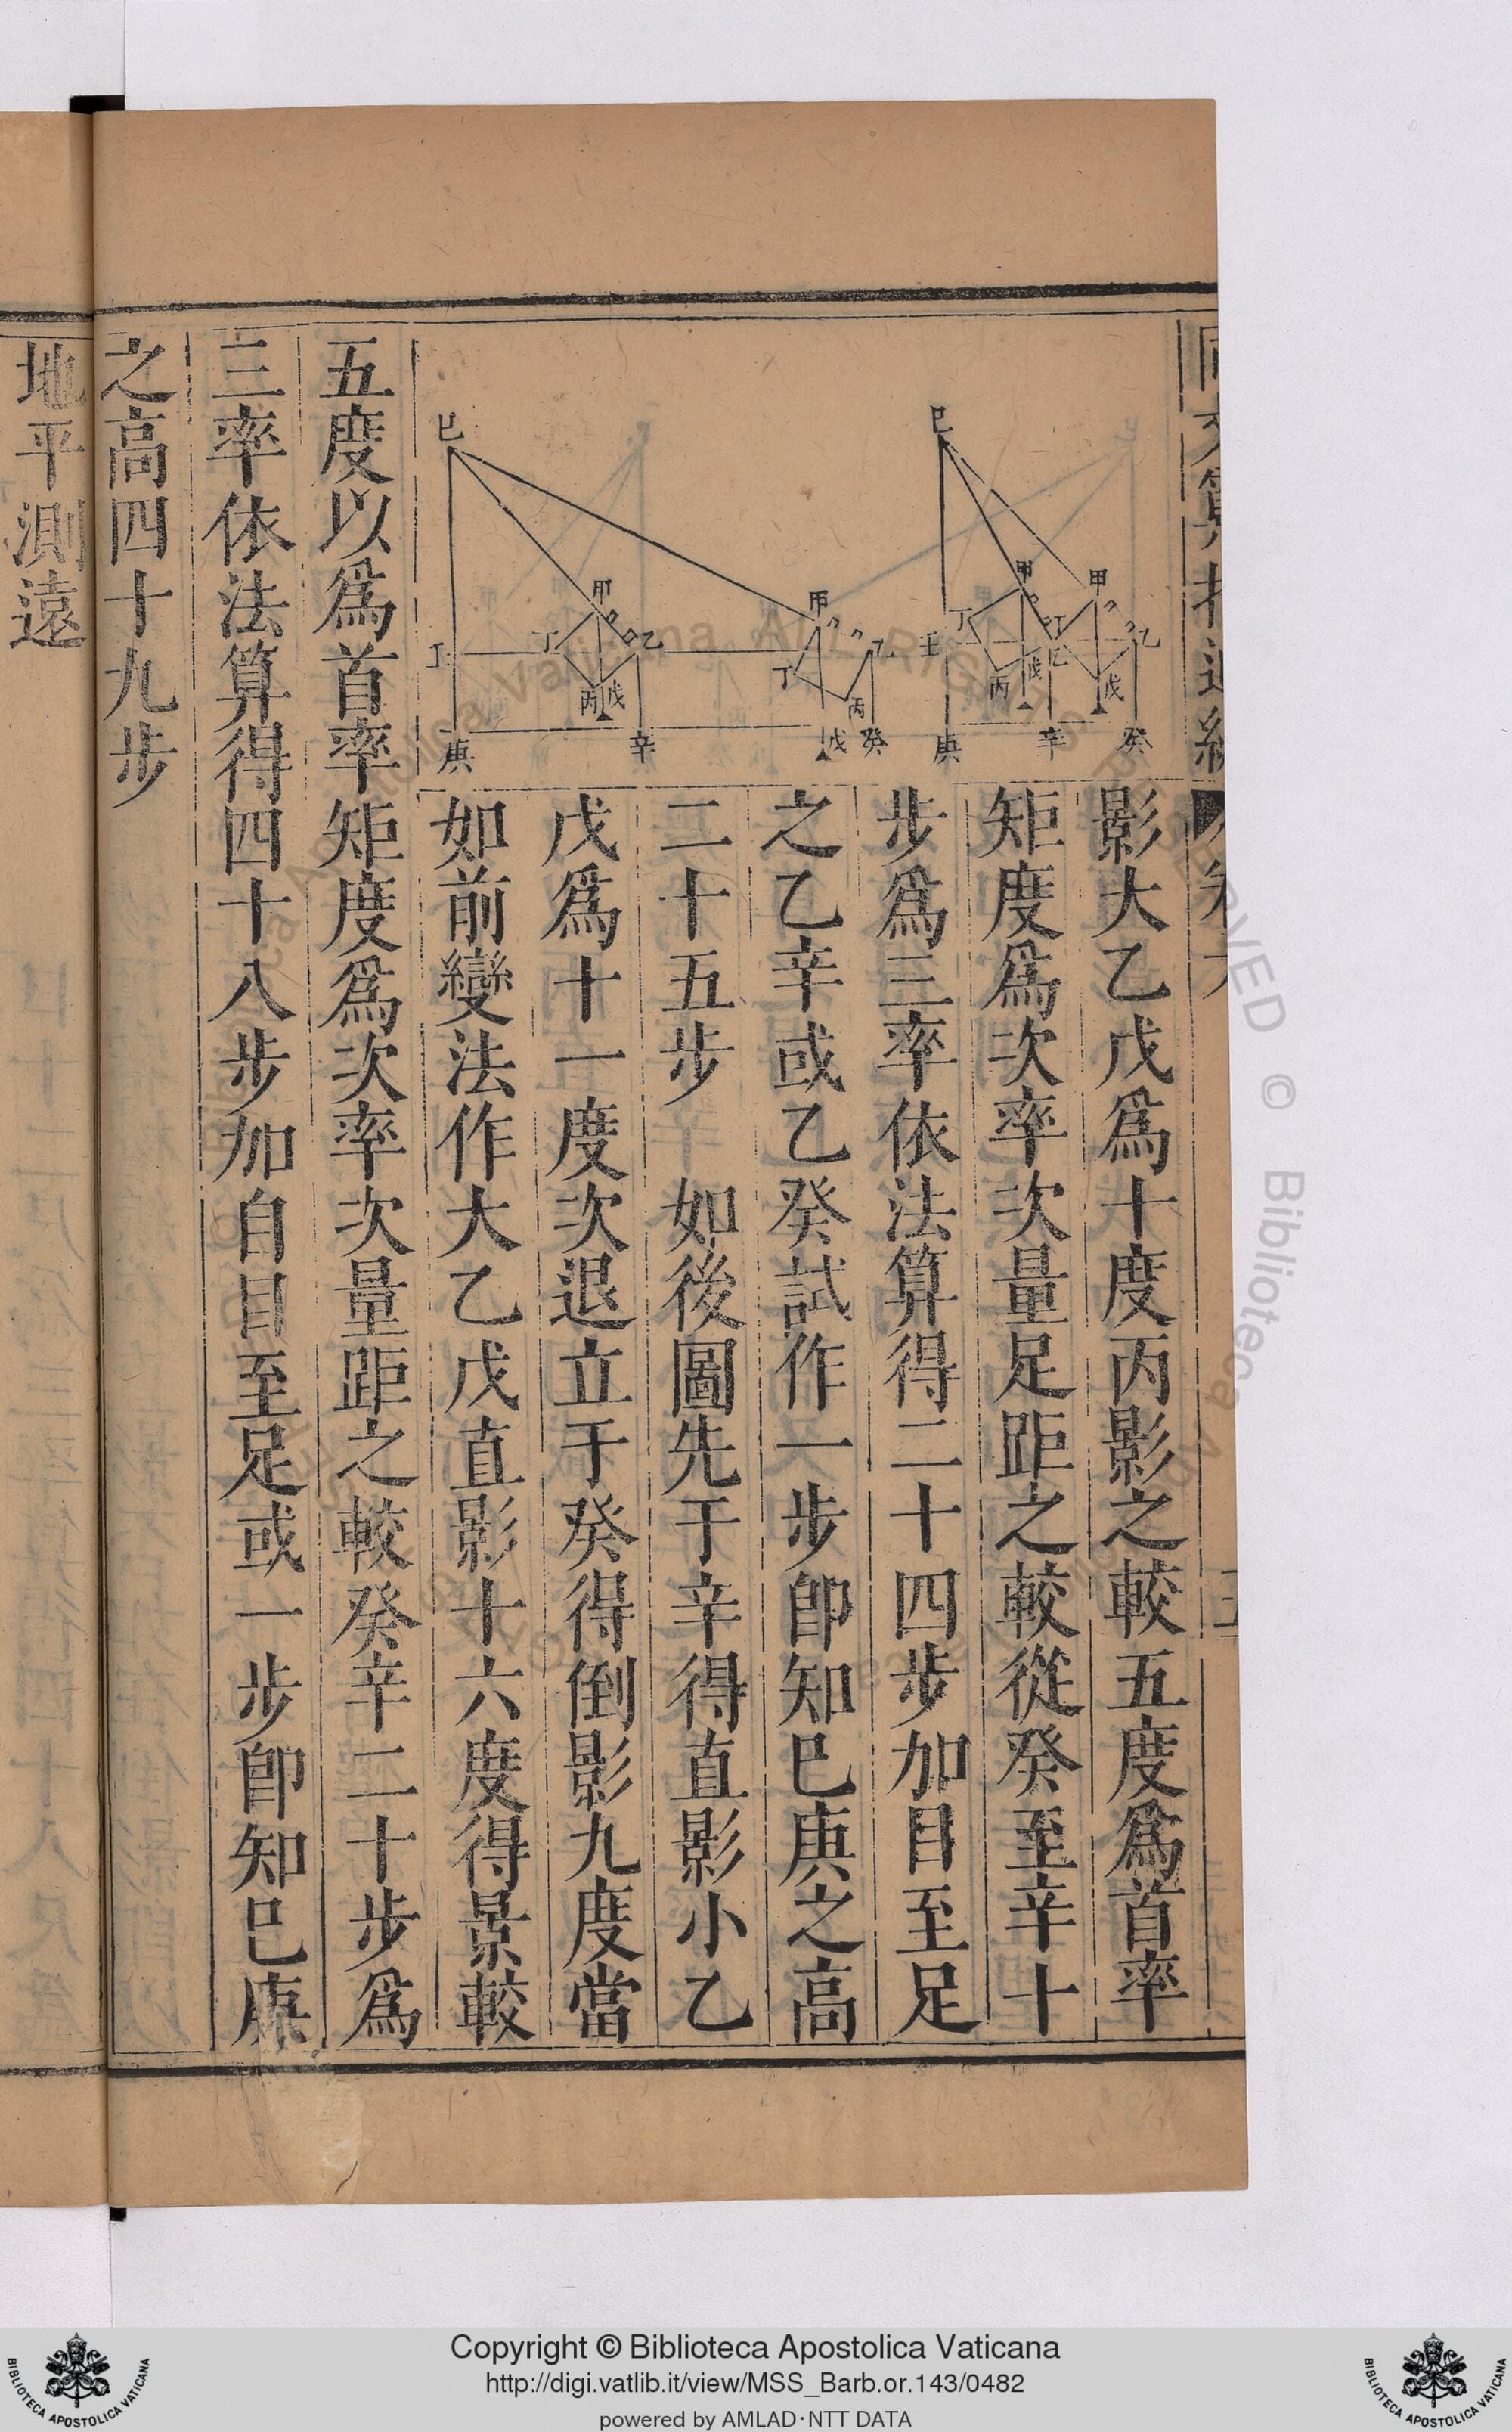 同文算指通編
卷六
影大乙戊爲十度丙影之較五度爲首率
矩度爲次率次量足距之較從癸至辛十
步爲三率依法算得二十四步加目至足
之乙辛或乙癸試作一步卽知巳庚之高
二十五步　如後圖先于辛得直影小乙
戊爲十一度次退立于癸得倒影九度當
如前變法作大乙戊直影十六度得景較
五度以爲首率矩度爲次率次量距之較癸辛二十步爲
三率依法算得四十八步加自目至足或一步卽知巳庚
之高四十九步
地平測遠
巳 甲 甲 丁 丁 乙 乙 壬 丙 戊 戊 庚 辛 癸
巳 甲 甲 丁 乙 丁 乙 丙 戊 丙 戊 庚 辛 癸
Biblioteca Apostolica Vaticana ALL RIGHTS RESERVED ©
Copyright © Biblioteca Apostolica Vaticana
http://digi.vatlib.it/view/MSS_Barb.or.143/0482
powered by AMLAD·NTT DATA
BIBLIOTECA APOSTOLICA VATICANA
BIBLIOTECA APOSTOLICA VATICANA